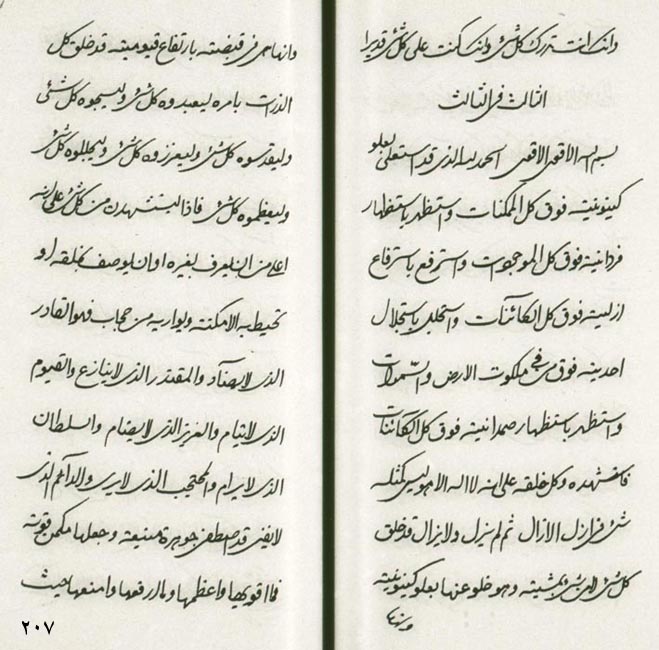 وانک انت تدرک کل شیئ وانک کنت علی کل شیئ قدیرا
الثالث فی الثالث
بسم الله الاقوی الاقوی الحمد لله الذی قد استعلی بعلو
کینونیته فوق کل الممکنات واستظهر باستظهار
فردانیته فوق کل الموجودات واسترفع باسترفاع
ازلیته فوق کل الکائنات واستجلل باستجلال
احدیته فوق من فی ملکوت الارض والسموات
واستظهر باستظهار صمدانیته فوق کل الکائنات
وکل خلقه علی انه لا اله الا هو لیس کمثله
شیئ فی ازل الازال ثم لم یزل ولا یزال قد خلق
کل شیئ بمشیته وهو خلو عنها بعلو کینونیته
وانها
وانها هی فی قبضته بارتفاع قیومیته قد خلق کل
الذرات بامره لیعبدوه کل شیئ ولیسجدوه کل شیئ
ولیقدسوه کل شیئ ولیعززوه کل شیئ ولیجللوه کل شیئ
ولیعظموه کل شیئ فاذا لیستشهدن من کل شیئ علی انه
اعلی من ان یعرف بغیره او ان یوصف بخلقه او
تحیط به الامکنة ویواریه من حجاب فهو القادر
الذی لا یضاد والمقتدر الذی لا ینازع والقیوم
الذی لا ینام والعزیز الذی لا یضام والسلطان
الذی لا یرام والمحتجب الذی لا یری والدائم الذی
لا یفنی قد اصطفی جوهرة منیعة وجعلها مکمن قوته
فما اقویها واعظمها وما ارفعها وامنعها حیث
۲۰۷